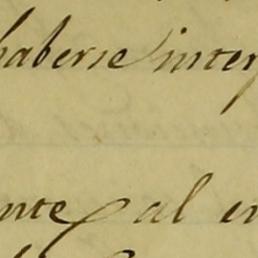 haberse inter
nte al en